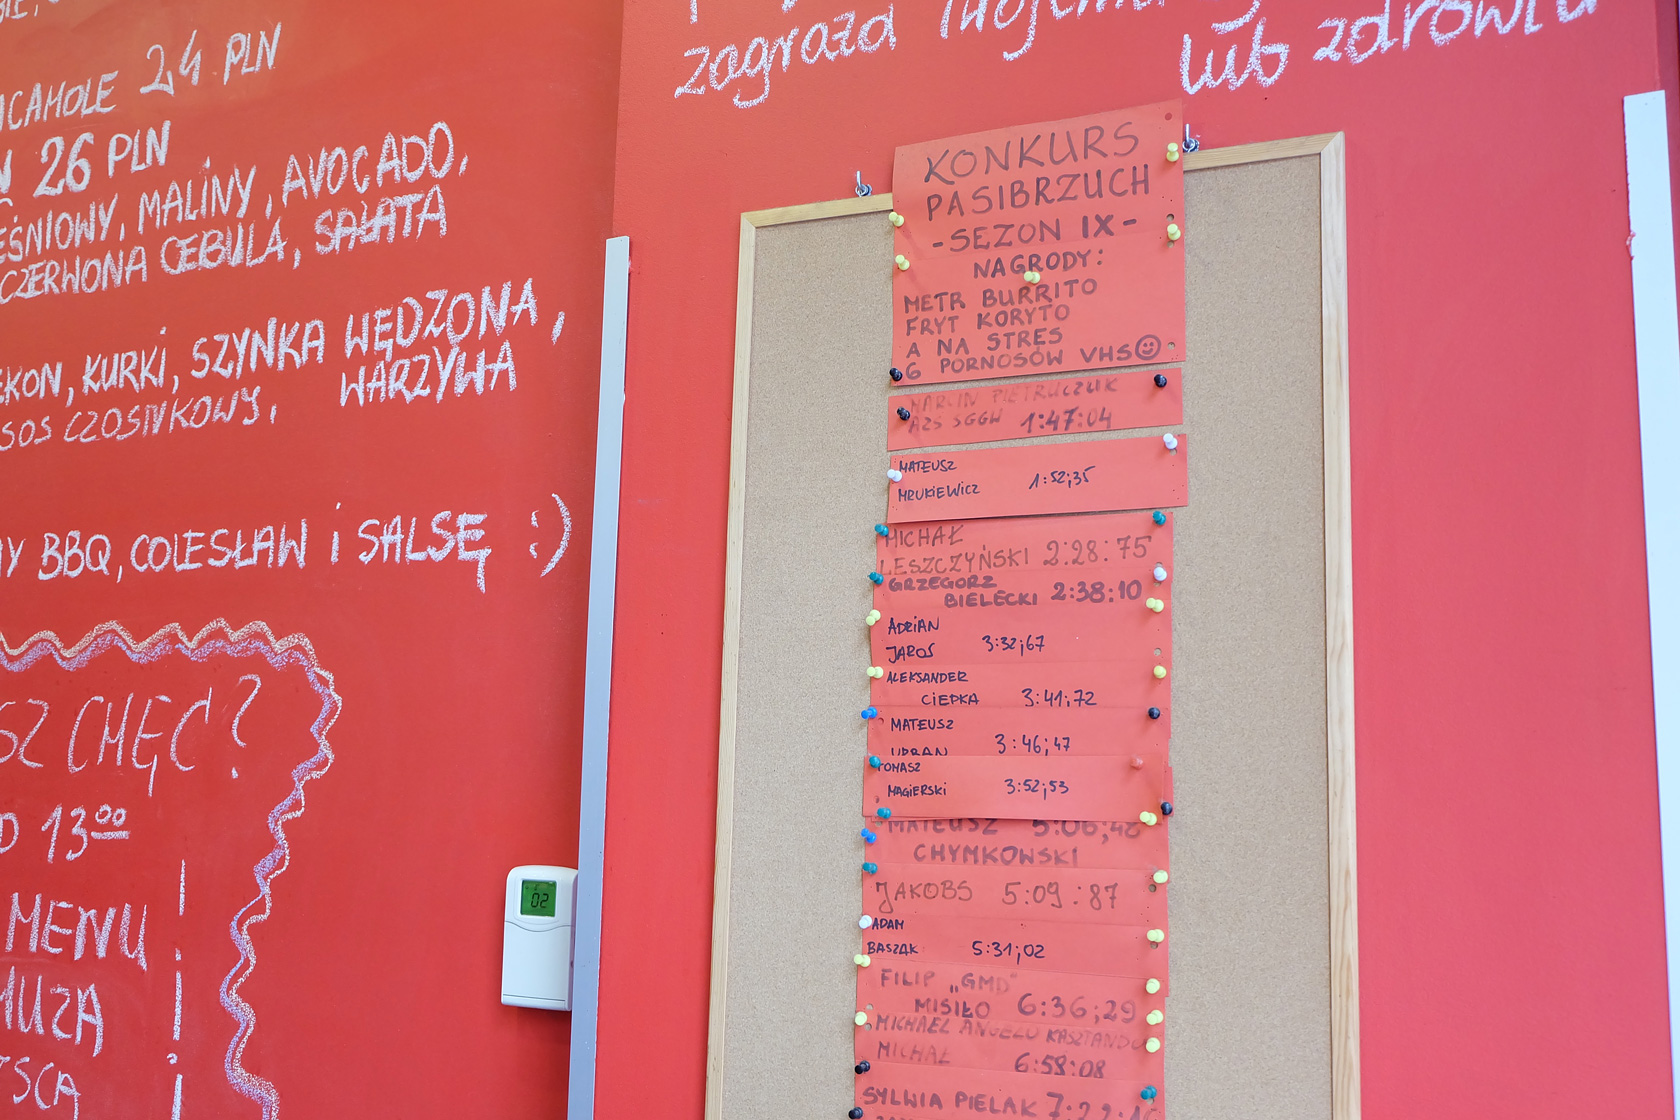 2,4 PLN
26 PLN
MALINY, AVOCADO,
CZERWONA CEBULA, SAŁATA
KURKI, SZYNKA WĘDZONA,
SOS CZOSNKOWY, WARZYWA
BBQ, COLESŁAW i SALSĘ :)
CHĘĆ?
13⁰⁰
MENU
lub zdrowiu
KONKURS
PASIBRZUCH
-SEZON IX-
NAGRODY:
METR BURRITO
FRYT KORYTO
A NA STRES
6 PORNOSÓW VHS☺
MARCIN PIETRUCZUK
AZS SGGW 1:47:04
MATEUSZ
MRUKIEWICZ 1:52;35
MICHAŁ
LESZCZYŃSKI 2:28:75
GRZEGORZ
BIELECKI 2:38:10
ADRIAN
JAROŚ 3:32;67
ALEKSANDER
CIEPKA 3:41;72
MATEUSZ
3:46;47
TOMASZ
MAGIERSKI 3:52;53
MATEUSZ 5:06;48
CHYMKOWSKI
JAKOBS 5:09:87
ADAM
BASZAK 5:31;02
FILIP „GMD"
MISIŁO 6:36;29
MICHAEL ANGELO
MICHAŁ 6:58:08
SYLWIA PIELAK
02